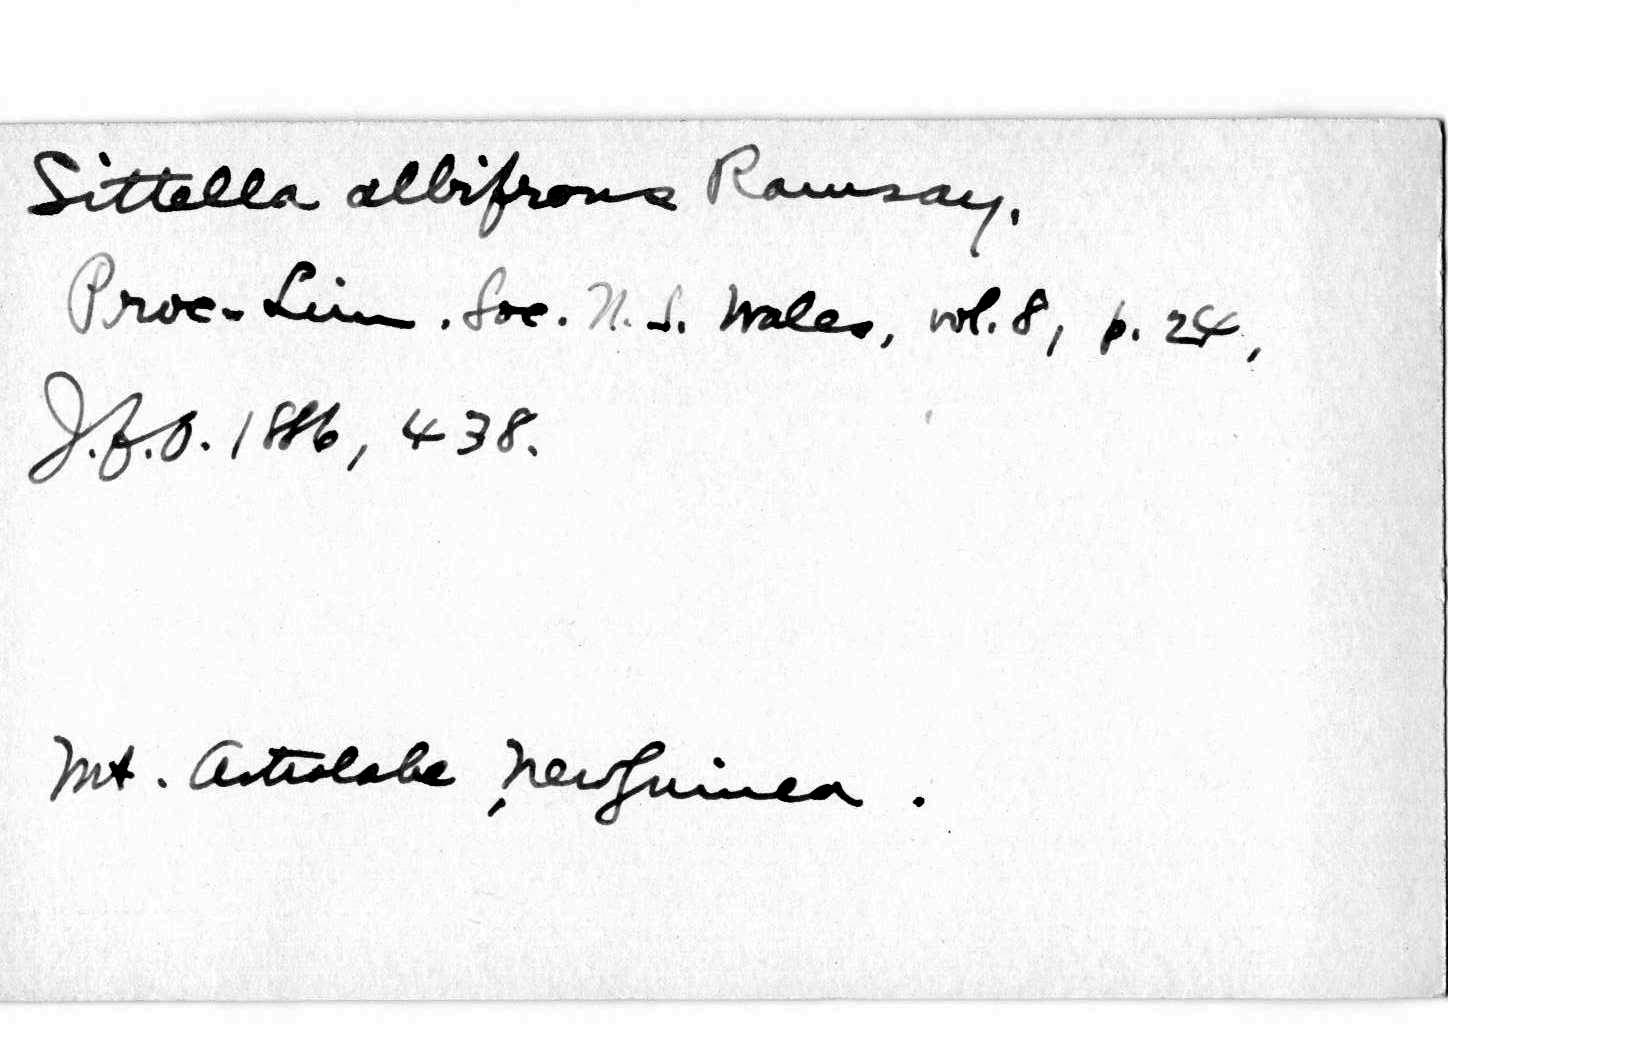 Sittella albifrons Ramsay.
Proc. Linn. Soc. N. S. Wales, vol. 8, p. 24,
J.f.O. 1886, 438.
Mt. Astrolabe, New Guinea.